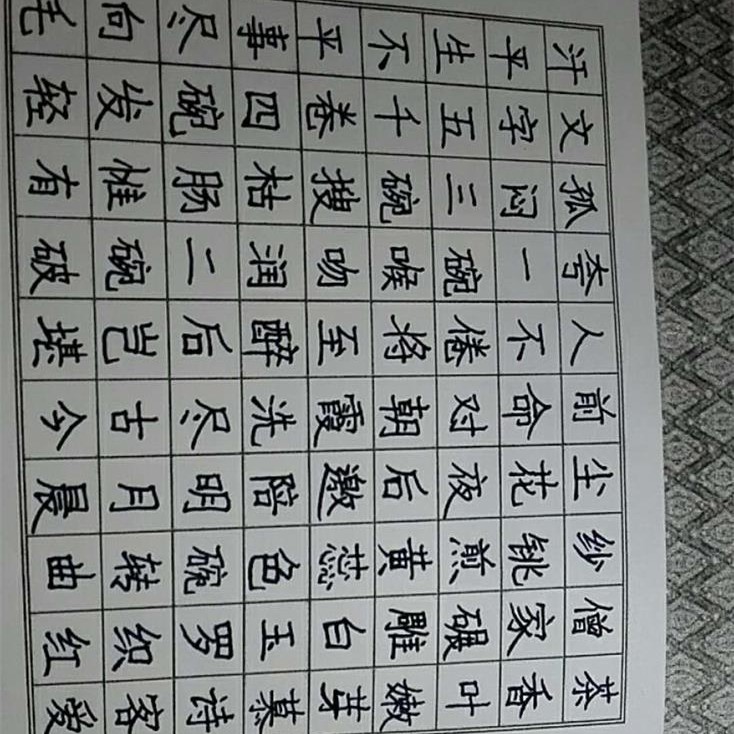 茶香叶嫩芽慕诗客爱
僧家碾雕白玉罗织红
纱铫煎黄蕊色碗转曲
尘花夜后邀陪明月晨
前命对朝霞洗尽古今
人不倦将至醉后岂堪
夸一碗喉吻润二碗破
孤闷三碗搜枯肠惟有
文字五千卷四碗发轻
汗平生不平事尽向毛